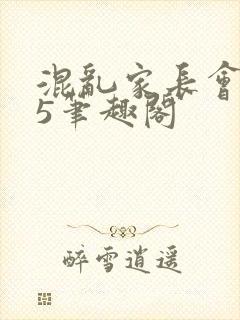 混亂家長會
5筆趣閣
醉雪逍遥